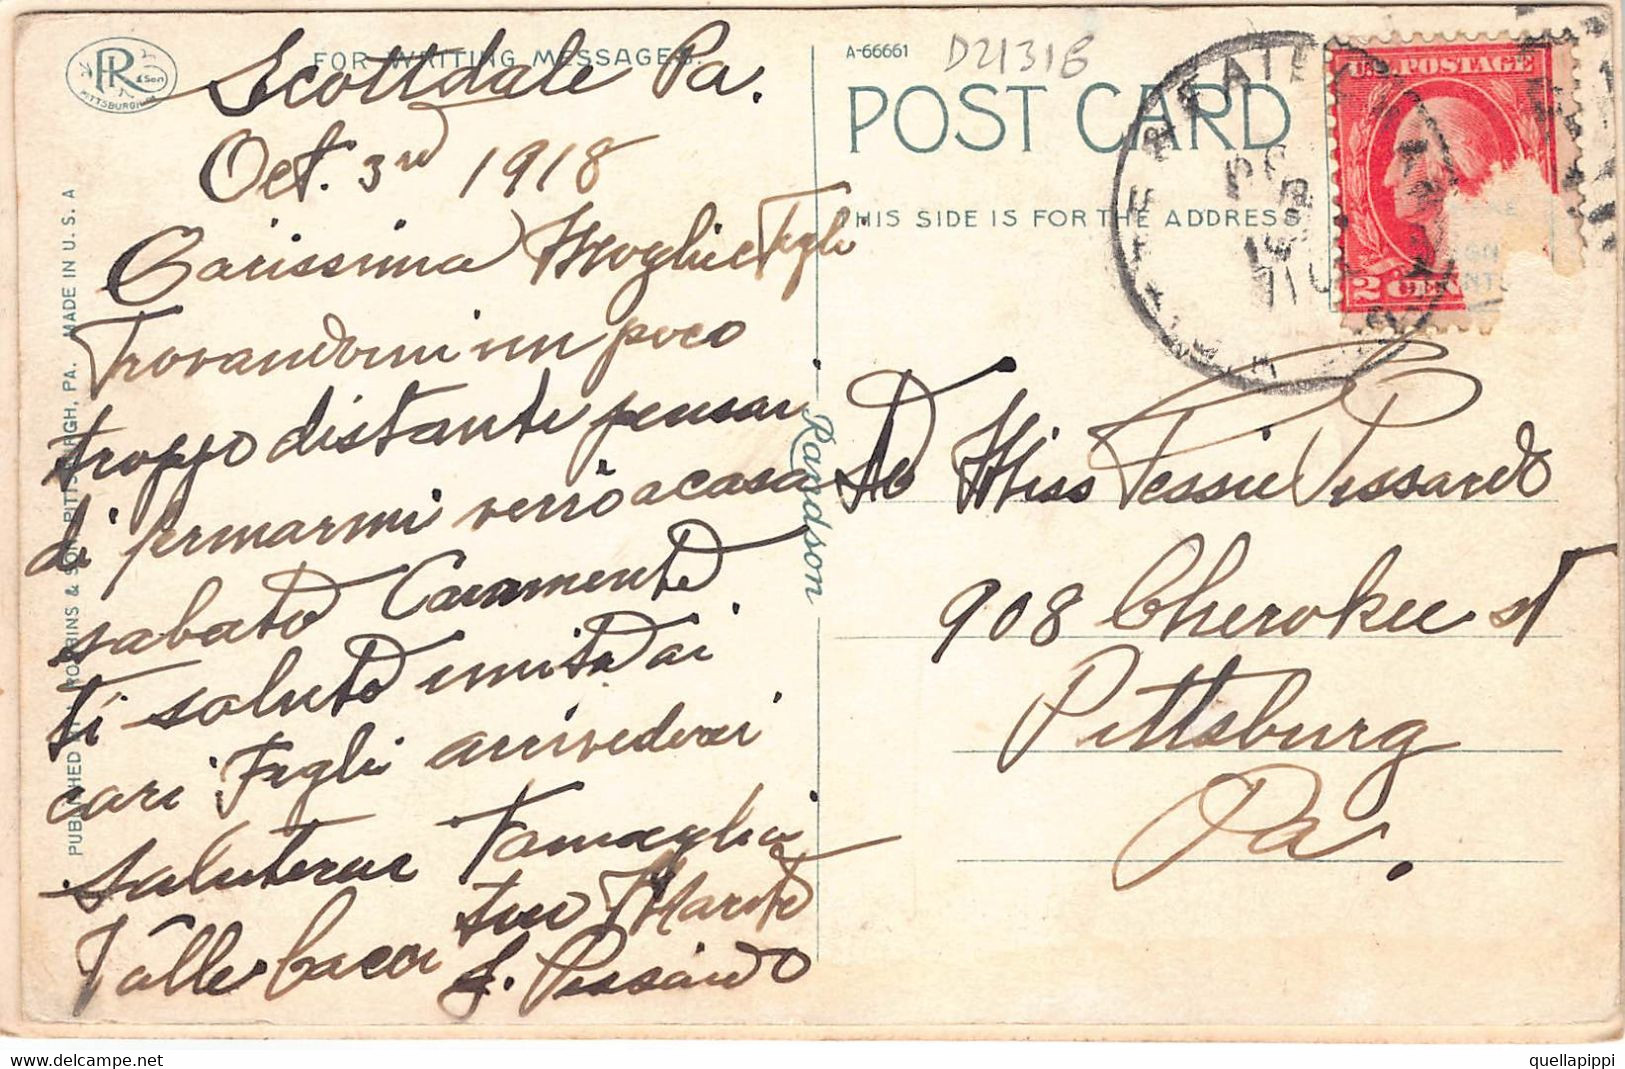 FOR WRITING MESSAGES.
Scottdale Pa.
Oct. 3rd 1918
Carissima Moglie e Figli
Trovandomi un poco
troppo distante pensai
di fermarmi verrò a casa
sabato Caramente
ti saluto unita ai
cari Figli arrivederci
saluterai Famiglia
Vallebacca tuo Marito
J. Pessardo
R & Son
PITTSBURGH, PA
PUBLISHED BY I. ROBBINS & SON, PITTSBURGH, PA. MADE IN U. S. A
Randson
A-66661
D2131B
POST CARD
THIS SIDE IS FOR THE ADDRESS
U.S. POSTAGE
2
To Miss Tessie Pessardo
908 Cherokee st
Pittsburg
Pa.
Made with PosterMyWall.com
quellapippi